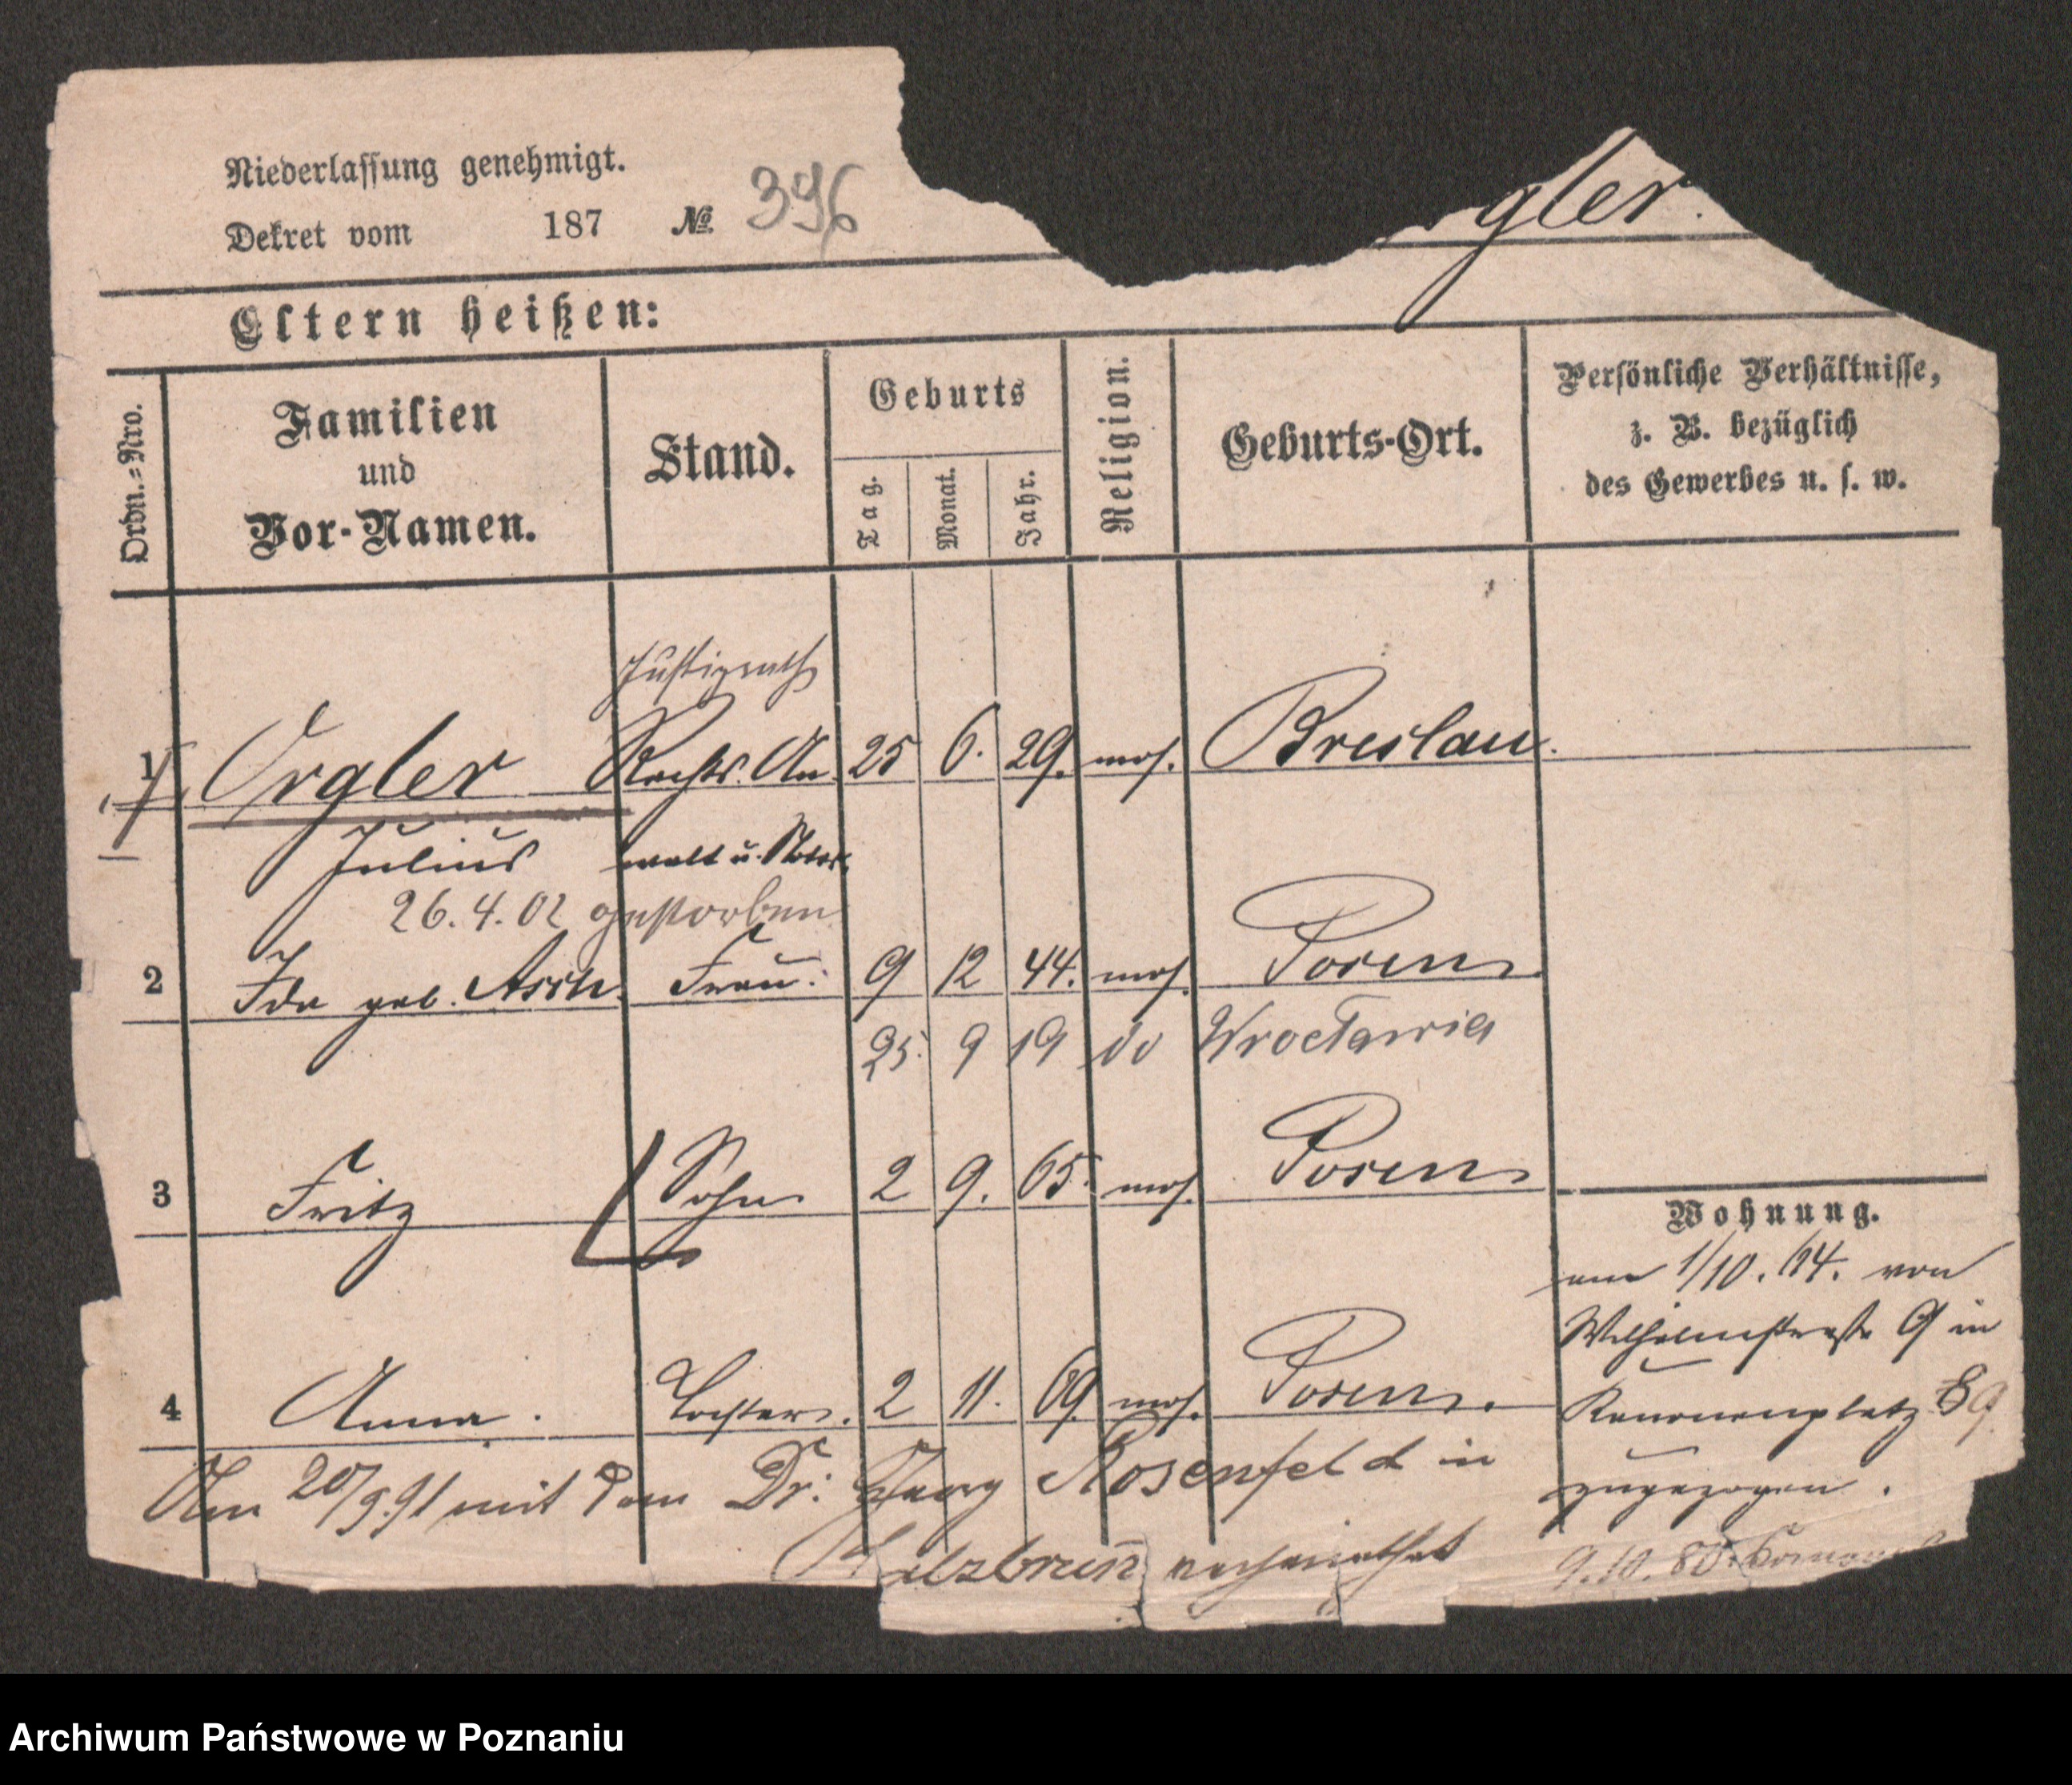 Niederlassung genehmigt.
Dekret vom 187 No. 396
gler.
Eltern heißen:
Ordn.-Nro.
Familien
und
Vor-Namen.
Stand.
Geburts
Tag.
Monat.
Jahr.
Religion.
Geburts-Ort.
Persönliche Verhältnisse,
z. B. bezüglich
des Gewerbes u. s. w.
Justizrath
1 Orgler Rechts. An 25 6. 29. mos. Breslau.
Julius walt u. Notar.
26. 4. 02 gestorben
2 Ida geb. Asch. Frau. 9 12 44. mos. Posen
25. 9 19 do Wrocławia
3 Fritz Sohn 2 9. 65. mos. Posen
4 Anna. Tochter. 2 11. 69. mos. Posen.
Am 20/9.91 mit dem Dr: Georg Rosenfeld in
Salzbrun̄ verheirathet
Wohnung.
am 1/10. 74. von
Wilhelmstraße 9 in
Kanonenplatz 9
zugezogen.
9. 10. 80.
Archiwum Państwowe w Poznaniu